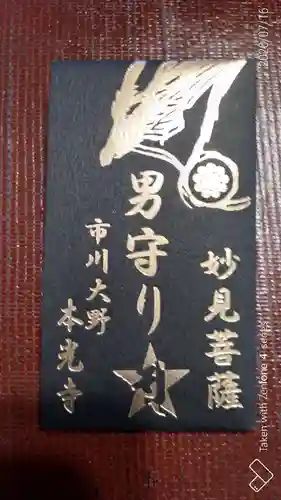 妙見菩薩
男守り
市川大野
本光寺
2026/07/16
Taken with Zenfone 4 series